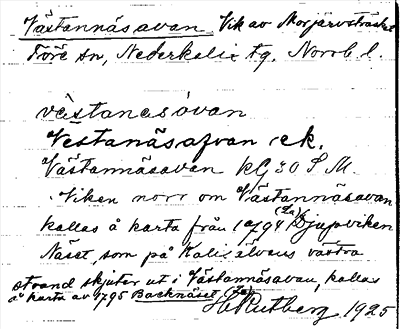 Västannäsavan Vik av Morjärvsträsket
Töre sn, Nederkalix tg. Norrb l.
vèstanǝsàvan
Vestanäsafvan ek.
Västannäsavan kG 30 S M.
Viken norr om Västannäsavan
kallas å karta från 1794 (La) Djupviken
Näset, som på Kalixälvens västra
strand skjuter ut i Västannäsavan, kallas
å karta av 1795 Backnäset (La)
H Rutberg 1925